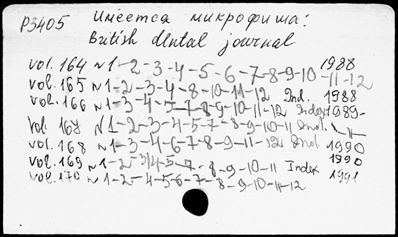 P3405 Имеется микрофиша:
British dental journal
vol. 164 N 1-2-3-4-5-6-7-8-9-10-11-12 1988
vol. 165 N 1-2-3-4-8-10-11-12 Ind. 1988
vol. 166 N 1-3-4-5-7-8-9-10-11-12 Index 1989-
vol. 167 N 1-2-3-4-5-7-8-9-10-11 Ind.
vol. 168 N 1-3-4-6-7-8-9-11-12 Ind. 1990
vol. 169 N 1-2-3/4-5-7-8-9-10-11 Index 1990
vol. 170 N 1-2-4-5-6-7-8-9-10-11-12 1991